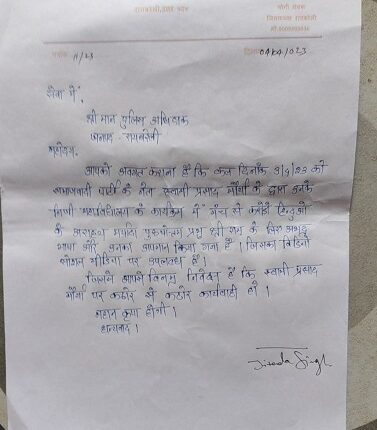 रायबरेली, उत्तर प्रदेश
योगी सेवक
जितेन्द्र
पत्रांक 11/23
दिनांक 04/04/023
सेवा में,
श्री मान पुलिस अधिक्षक
जनपद - रायबरेली
महोदय,
आपको अवगत कराना है कि कल दिनाँक 3/4/23 को
समाजवादी पार्टी के नेता स्वामी प्रसाद मौर्या के द्वारा उनके
निजी महाविद्यालय के कार्यक्रम में मंच से करोड़ो हिन्दुओ
के आराध्य मर्यादा पुरुषोत्तम प्रभु श्री राम के लिए अभद्र
भाषा और उनका अपमान किया गया है। जिसका विडियो
सोशल मीडिया पर उपलब्ध है।
जिसमें आपसे विनम्र निवेदन है कि स्वामी प्रसाद
मौर्या पर कठोर से कठोर कार्यवाही हो।
महान कृपा होगी।
धन्यवाद।
Jitendra Singh